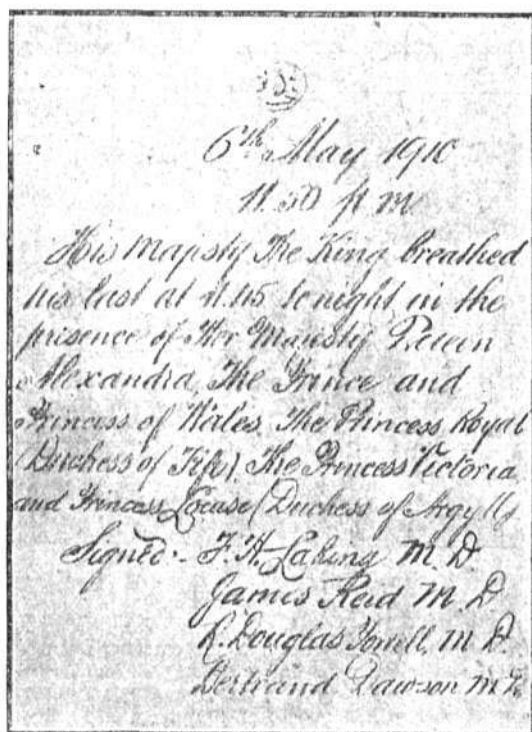 6th May 1910
11.50 p.m.
His Majesty The King breathed
his last at 11.45 tonight in the
presence of Her Majesty Queen
Alexandra, The Prince and
Princess of Wales, The Princess Royal
(Duchess of Fife), The Princess Victoria
and Princess Louise (Duchess of Argyll)
Signed:- F. H. Laking M.D.
James Reid M.D.
R. Douglas Powell, M.D.
Bertrand Dawson M.D.